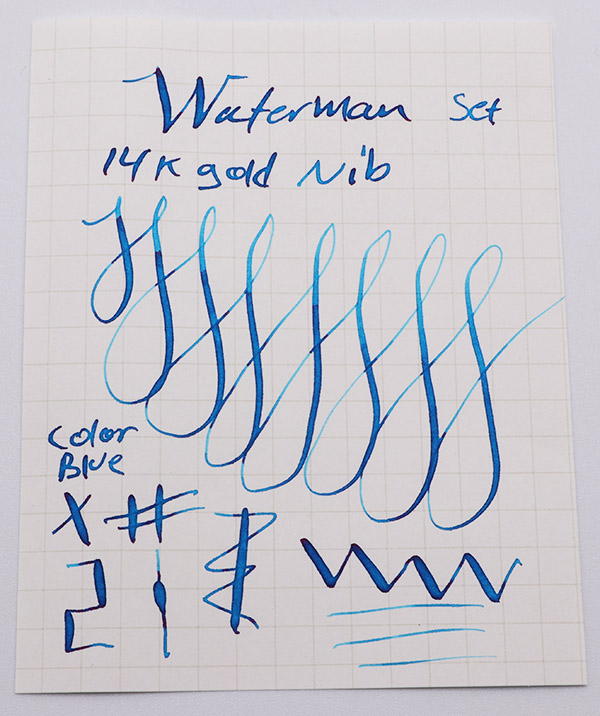 Waterman Set
14K gold Nib
Color
Blue
X #
2